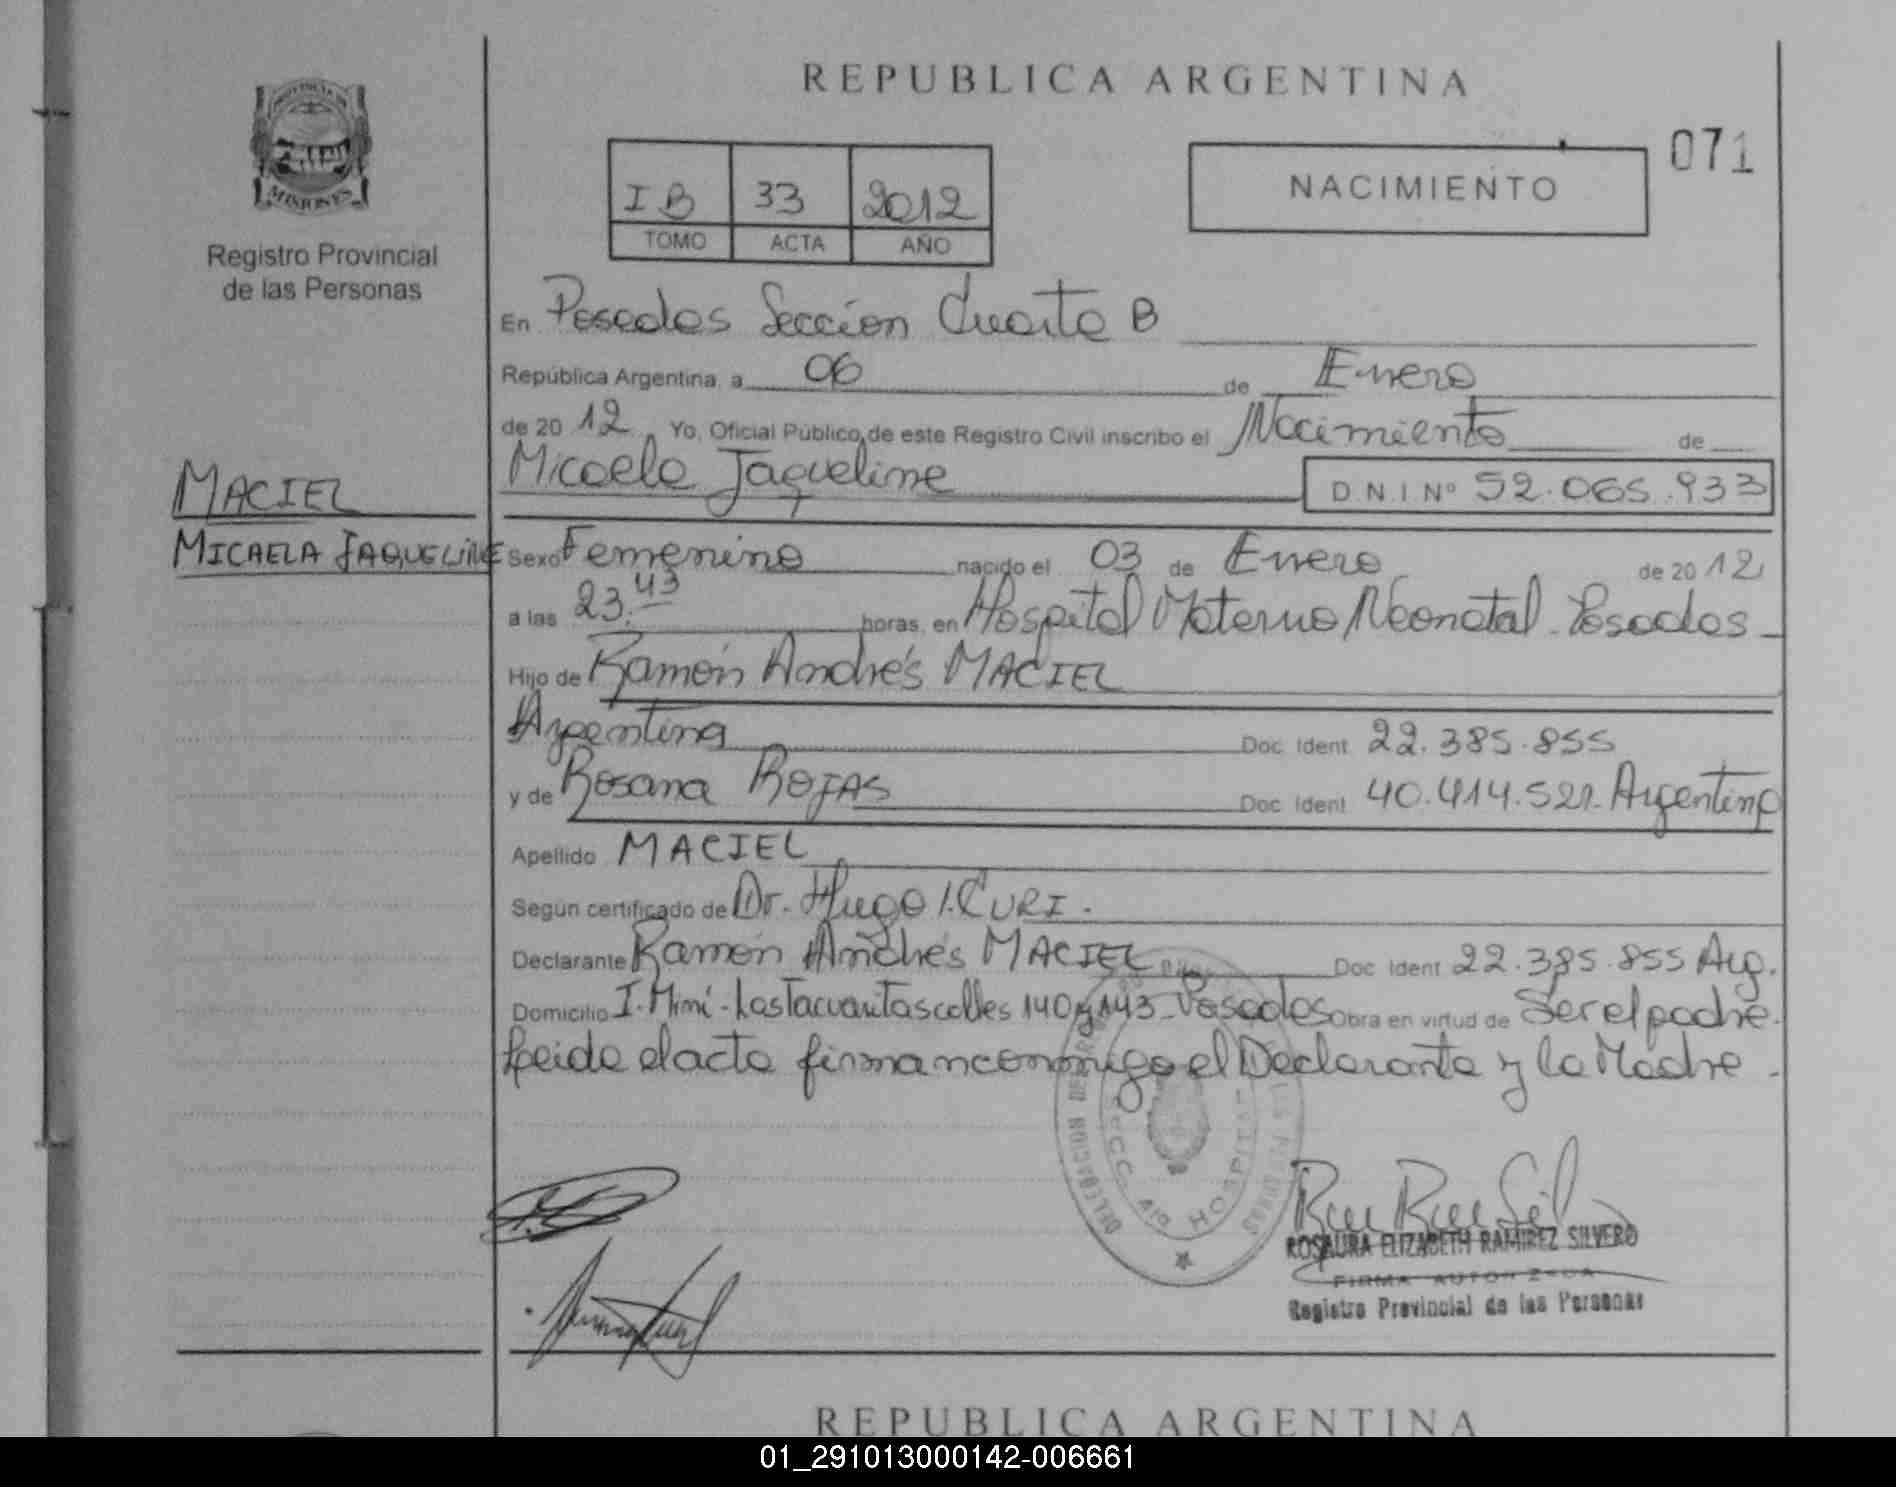 REPUBLICA ARGENTINA
071
NACIMIENTO
I B 33 2012
TOMO ACTA AÑO
PROVINCIA DE
MISIONES
Registro Provincial
de las Personas
En Posadas Sección Cuarta B
República Argentina, a 06 de Enero
de 20 12 Yo, Oficial Público de este Registro Civil inscribo el Nacimiento de
Micaela Jaqueline D.N.I Nº 52.065.933
MACIEL
MICAELA JAQUELINE
Sexo Femenino nacido el 03 de Enero de 20 12
a las 23.43 horas, en Hospital Materno Neonatal - Posadas -
Hijo de Ramón Andrés MACIEL
Argentina Doc. Ident 22.385.855
y de Rosana ROJAS Doc. Ident 40.414.521 - Argentina
Apellido MACIEL
Según certificado de Dr. Hugo I. CURI.
Declarante Ramón Andrés MACIEL Doc. Ident 22.385.855 Arg.
Domicilio I. Miní - Las Tacuaritas calles 140 y 143 - Posadas Obra en virtud de Ser el padre.
Leida el acta firman conmigo el Declarante y la Madre -
DELEGACION
SECC. 4ta
HOSPITAL
ROSAURA ELIZABETH RAMIREZ SILVERO
FIRMA AUTORIZADA
Registro Provincial de las Personas
REPUBLICA ARGENTINA
01_291013000142-006661